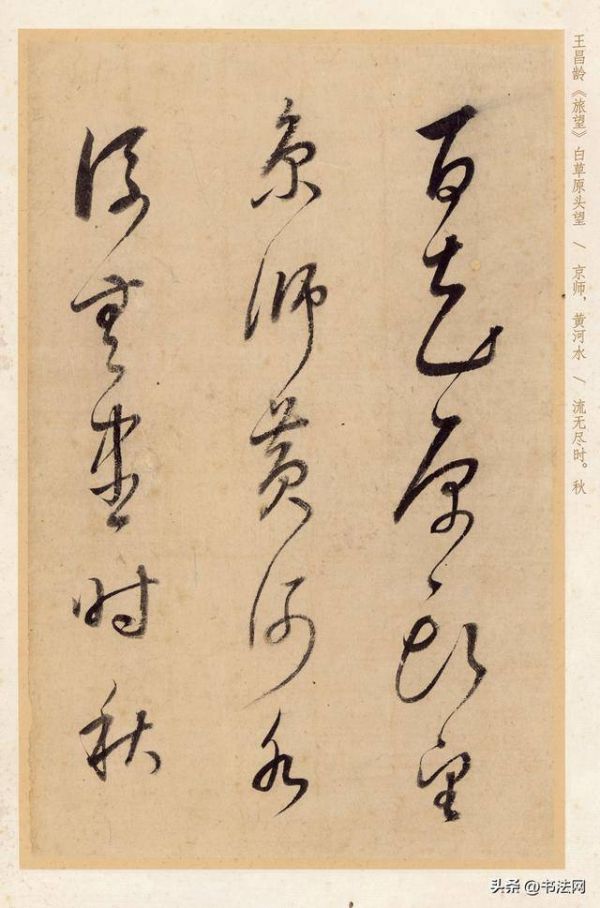 王昌龄《旅望》白草原头望 / 京师,黄河水 / 流无尽时。秋
百花原頭望
京師黄河水
流無盡时秋
头条 @书法网